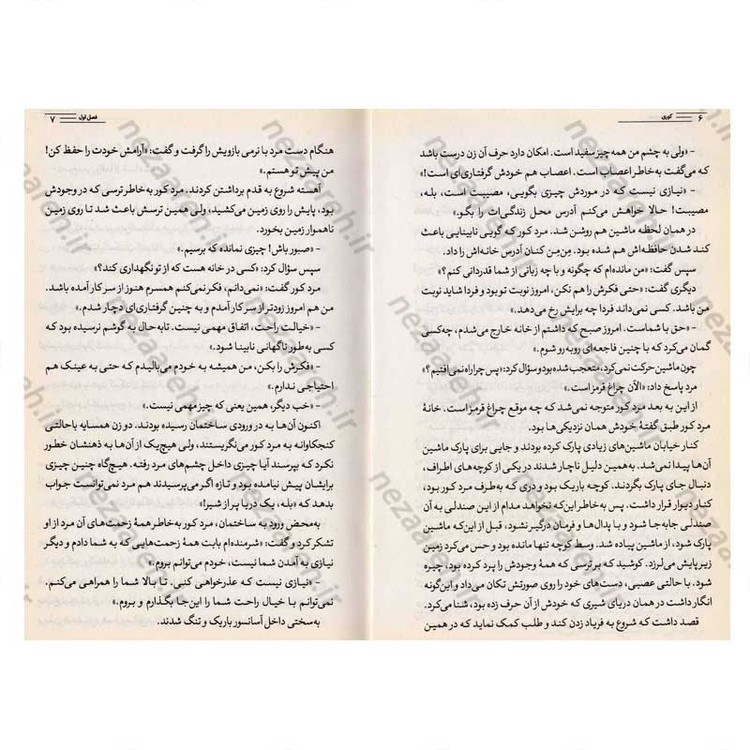 ۶ کوری
- «ولی به چشم من همه چیز سفید است. امکان دارد حرف آن زن درست باشد
که می‌گفت به‌خاطر اعصاب است. اعصاب هم خودش گرفتاری‌ای است!»
- «نیازی نیست که در موردش چیزی بگویی، مصیبت است، بله،
مصیبت! حالا خواهش می‌کنم آدرس محل زندگی‌ات را بگو.»
در همان لحظه ماشین هم روشن شد. مرد کور که گویی نابینایی باعث
کند شدن حافظه‌اش هم شده بود. مِن‌مِن کنان آدرس خانه‌اش را داد.
سپس گفت: «من مانده‌ام که چگونه و با چه زبانی از شما قدردانی کنم؟»
دیگری گفت: «حتی فکرش را هم نکن، امروز نوبت تو بود و فردا شاید نوبت
من باشد. کسی نمی‌داند فردا چه برایش رخ می‌دهد.»
- «حق با شماست. امروز صبح که داشتم از خانه خارج می‌شدم، چه‌کسی
گمان می‌کرد که با چنین فاجعه‌ای روبه‌رو شوم.»
چون ماشین حرکت نمی‌کرد، متعجب شده بود و سؤال کرد: «پس چرا راه نمی‌افتیم؟»
مرد پاسخ داد: «الآن چراغ قرمز است.»
از این به بعد مرد کور متوجه نمی‌شد که چه موقع چراغ قرمز است. خانهٔ
مرد کور طبق گفتهٔ خودش همان نزدیکی‌ها بود.
کنار خیابان ماشین‌های زیادی پارک کرده بودند و جایی برای پارک ماشین
آن‌ها پیدا نمی‌شد. به‌همین دلیل ناچار شدند در یکی از کوچه‌های اطراف،
دنبال جای پارک بگردند. کوچه باریک بود و دری که به‌طرف مرد کور بود،
کنار دیوار قرار داشت. پس به خاطر این‌که نخواهد مدام از این صندلی به آن
صندلی جابه‌جا شود و با پدال‌ها و فرمان درگیر نشود، قبل از این‌که ماشین
پارک شود، از ماشین پیاده شد. وسط کوچه تنها مانده بود و حس می‌کرد زمین
زیر پایش می‌لرزد. کوشید که بر ترسی که همهٔ وجودش را پر کرده بود، چیره
شود. با حالتی عصبی، دست‌های خود را روی صورتش تکان می‌داد و این‌گونه
انگار داشت در همان دریای شیری که خودش از آن حرف زده بود، شنا می‌کرد.
قصد داشت که شروع به فریاد زدن کند و طلب کمک نماید که در همین
فصل اول ۷
هنگام دست مرد با نرمی بازویش را گرفت و گفت: «آرامش خودت را حفظ کن!
من پیش تو هستم.»
آهسته شروع به قدم برداشتن کردند. مرد کور به‌خاطر ترسی که در وجودش
بود، پایش را روی زمین می‌کشید، ولی همین ترسش باعث شد تا روی زمین
ناهموار زمین بخورد.
- «صبور باش! چیزی نمانده که برسیم.»
سپس سؤال کرد: «کسی در خانه هست که از تو نگهداری کند؟»
مرد کور گفت: «نمی‌دانم، فکر نمی‌کنم همسرم هنوز از سر کار آمده باشد.
من هم امروز زودتر از سر کار آمدم و به چنین گرفتاری‌ای دچار شدم.»
- «خیالت راحت، اتفاق مهمی نیست. تابه‌حال به گوشم نرسیده بود که
کسی به‌طور ناگهانی نابینا شود.»
- «فکرش را بکن، من همیشه به خودم می‌بالیدم که حتی به عینک هم
احتیاجی ندارم.»
- «خب دیگر، همین یعنی که چیز مهمی نیست.»
اکنون آن‌ها به در ورودی ساختمان رسیده بودند. دو زن همسایه با حالتی
کنجکاوانه به مرد کور می‌نگریستند، ولی هیچ‌یک از آن‌ها به ذهنشان خطور
نکرد که بپرسند آیا چیزی داخل چشم‌های مرد رفته. هیچ‌گاه چنین چیزی
برایشان پیش نیامده بود و تازه اگر می‌پرسیدند هم مرد نمی‌توانست جواب
بدهد که «بله، یک دریا پر از شیر!»
به‌محض ورود به ساختمان، مرد کور به‌خاطر همهٔ زحمت‌های آن مرد از او
تشکر کرد و گفت: «شرمنده‌ام بابت همهٔ زحمت‌هایی که به شما دادم و دیگر
نیازی به آمدن شما نیست، خودم می‌توانم بروم.»
- «نیازی نیست که عذرخواهی کنی. تا بالا شما را همراهی می‌کنم.
نمی‌توانم با خیال راحت شما را این‌جا بگذارم و بروم.»
به‌سختی داخل آسانسور باریک و تنگ شدند.
nezaareh.ir